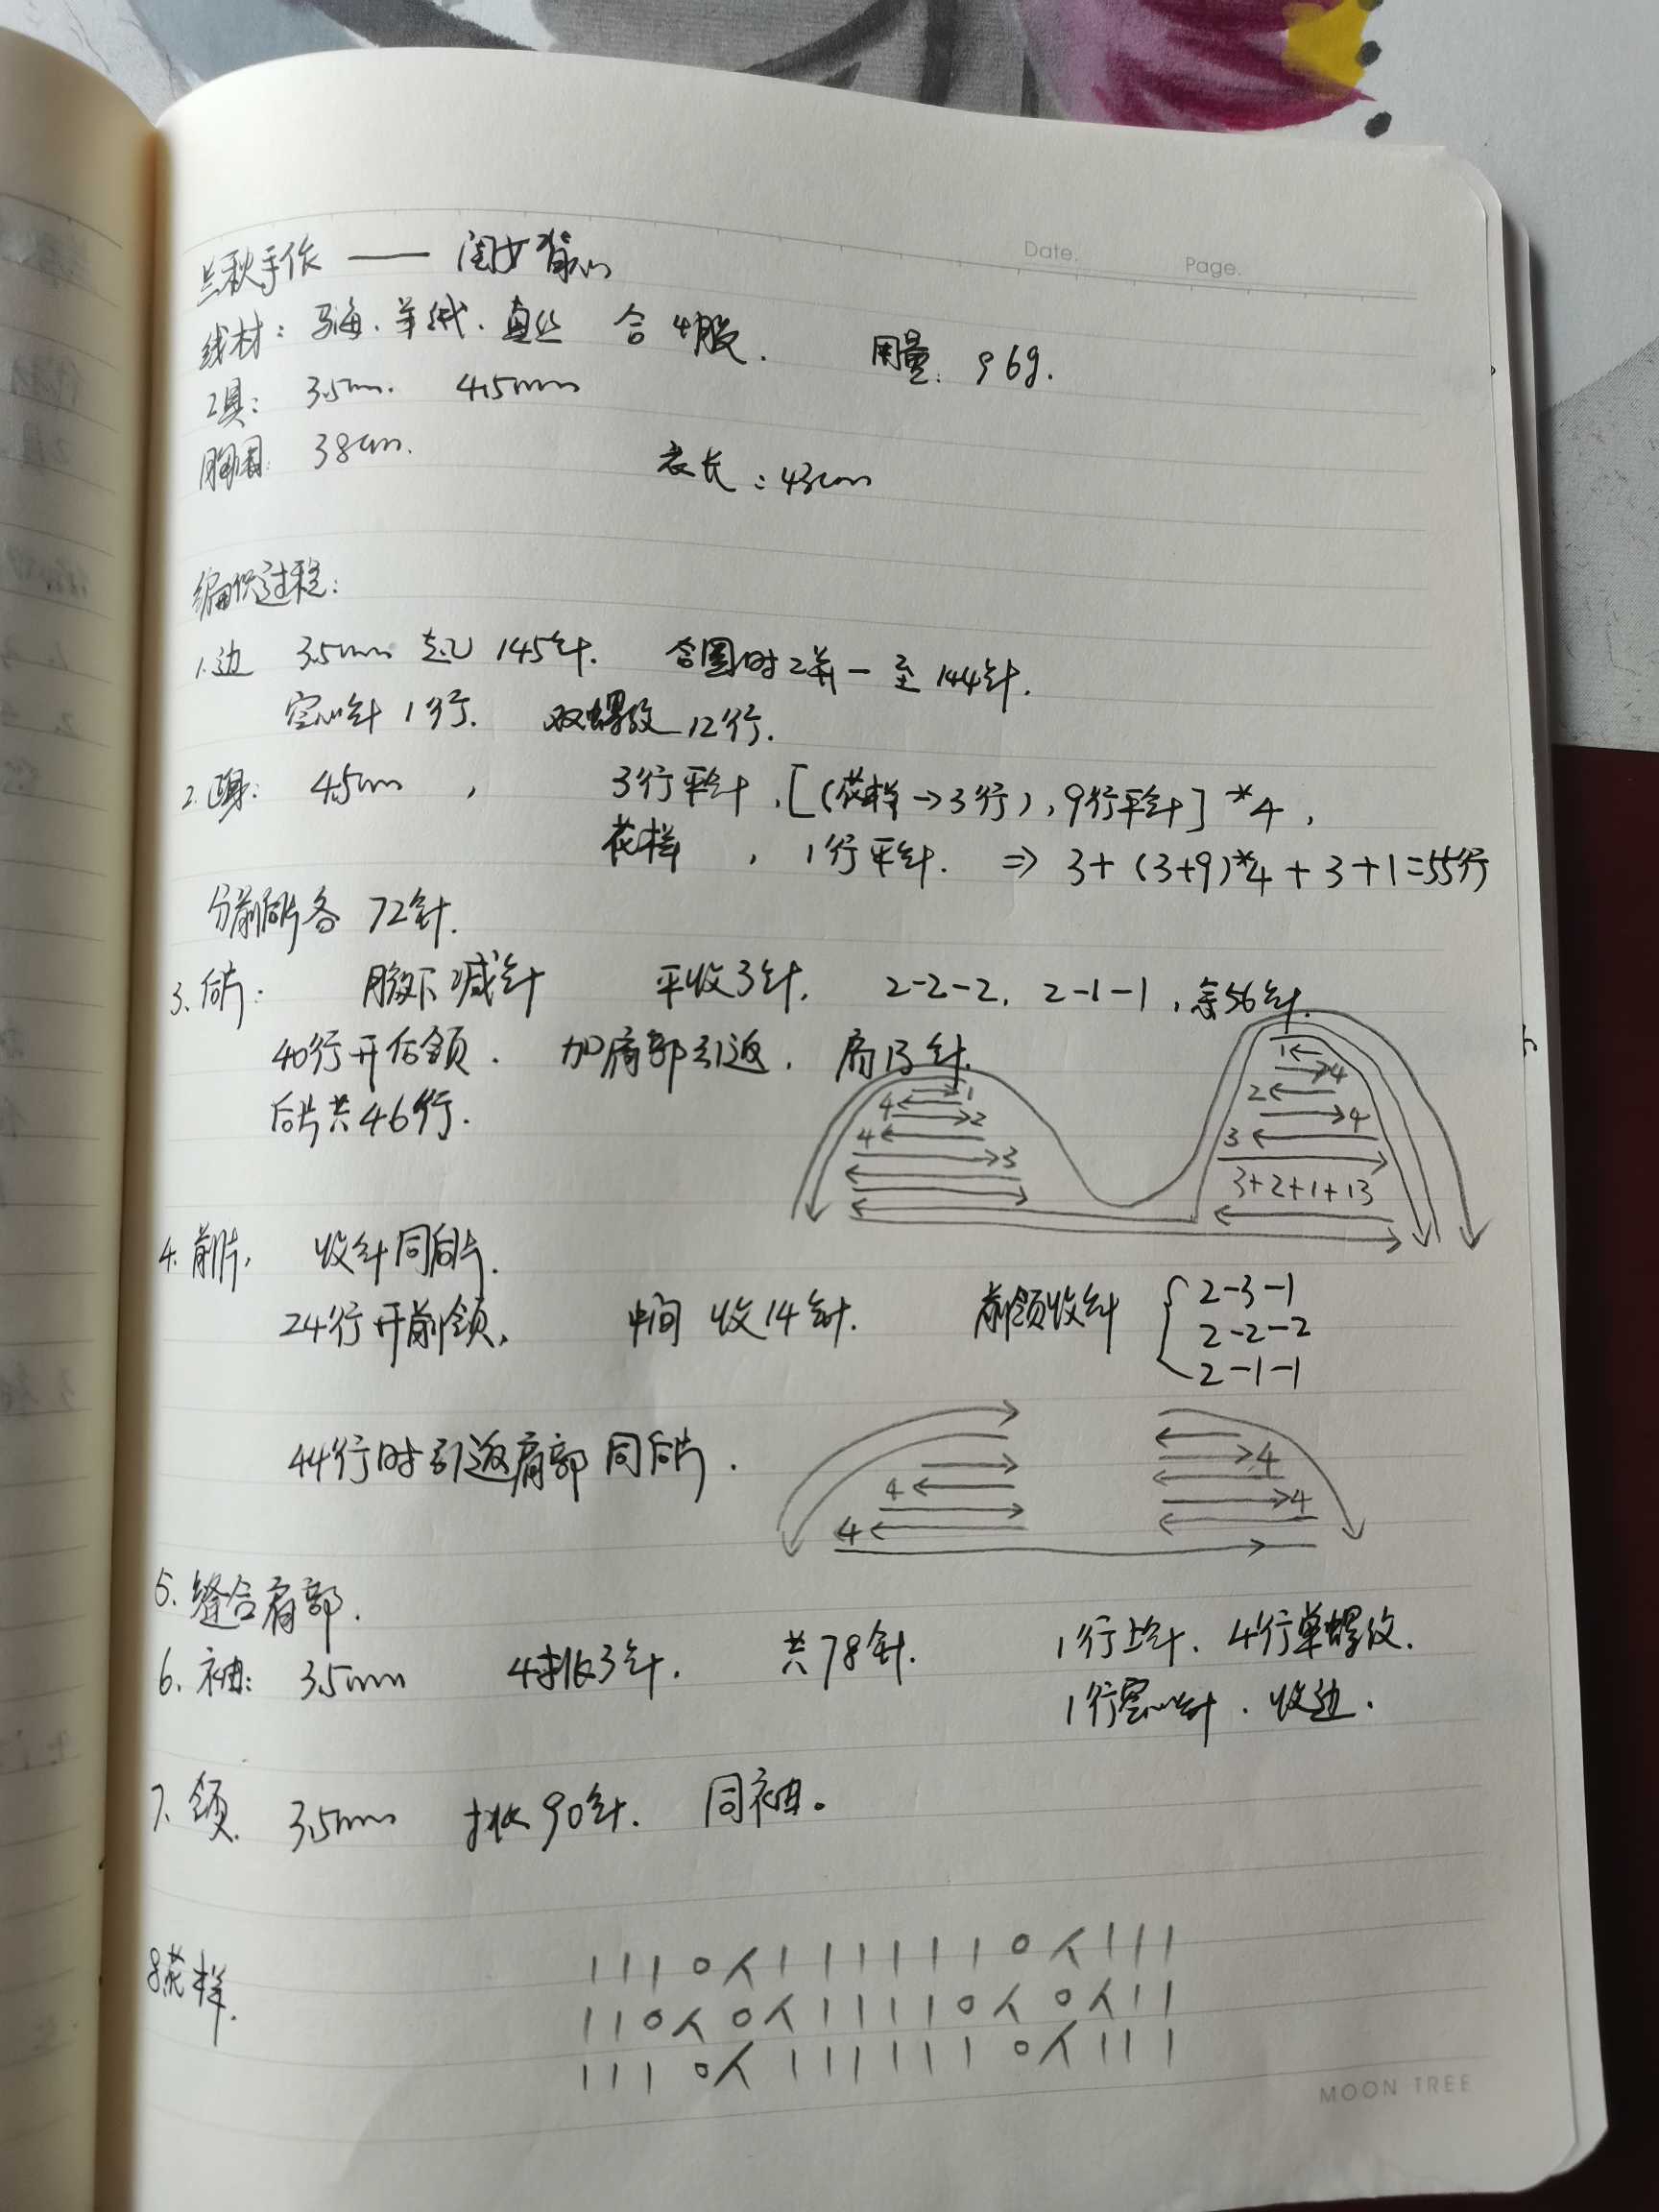 Date.
Page.
兰秋手作 —— 闺女背心
线材：马海.羊绒.真丝 合4股. 用量: 96g.
工具： 3.5mm. 4.5mm
胸围: 38cm. 衣长：43cm
编织过程：
1.边 3.5mm 起 145针. 合圈时2并一至144针.
空心针1行. 双螺纹12行.
2.身: 4.5mm , 3行平针,[(花样→3行),9行平针]*4,
花样 , 1行平针. ⇒ 3+(3+9)*4+3+1=55行
分前后片各 72针.
3.后片: 腋下减针 平收3针, 2-2-2, 2-1-1,余56针.
40行开后领. 加肩部引返. 肩13针.
后片共46行.
1
4
2
4
3
1
4
2
4
3
3+2+1+13
4.前片, 收针同后片.
24行开前领, 中间 收14针. 前领收针 { 2-3-1
2-2-2
2-1-1
44行时引返肩部同后片.
4
4
4
4
5.缝合肩部.
6.袖: 3.5mm 4挑3针. 共78针. 1行上针. 4行单螺纹.
1行空心针. 收边.
7.领. 3.5mm 挑90针. 同袖。
8花样.
| | | o 人 | | | | | | o 人 | | |
| | o 人 o 人 | | | | o 人 o 人 | |
| | | o 人 | | | | | | o 人 | | |
MOON TREE